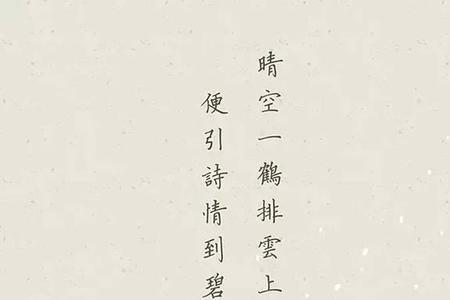 晴空一鶴排雲上
便引詩情到碧